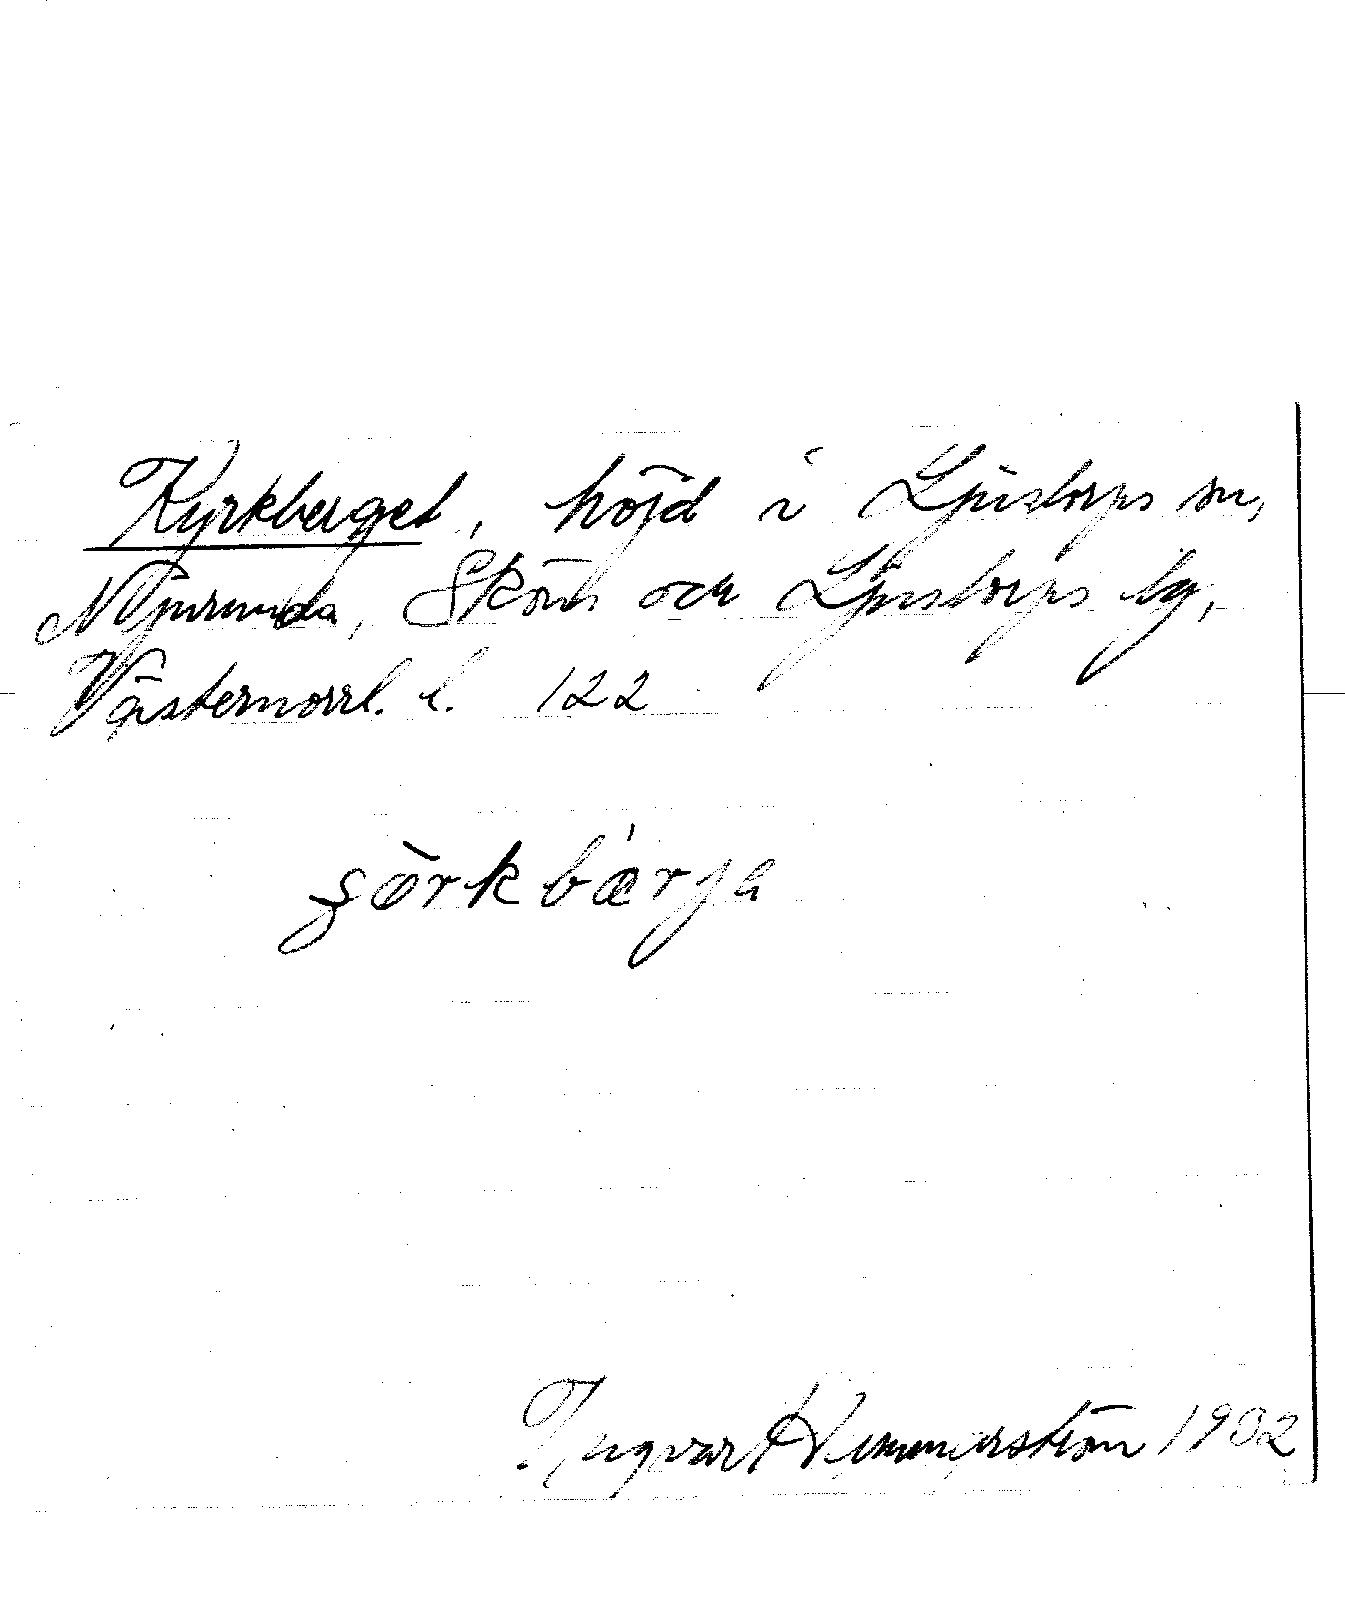 Kyrkberget, höjd i Ljustorps sn,
Njurunda, Sköns och Ljustorps tg,
Västernorrl. l. 122
şö̀rkbæ̀rjɑ
Ingvar 1932